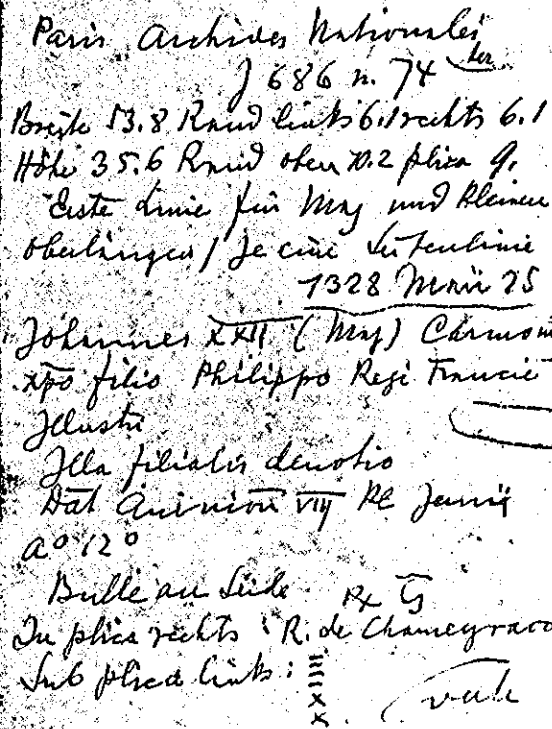 Paris Archives Nationales
J 686 n. 74 ter
Breite 53.8 Rand links 6.1 rechts 6.1
Höhe 35.6 Rand oben 10.2 plica 9.
Erste Linie für Maj und kleinen
Oberlängen / Je eine Seitenlinie
1328 Maii 25
Johannes XXII (Maj) Carmo
xpo filio Philippo Regi Francie
Illustri
Illa filialis deuotio
Dat Auinion VIIJ Kl Junii
a° 12°
Bulle an Seide Rx
In plica rechts : R. de Chameyraco
Sub plica links :